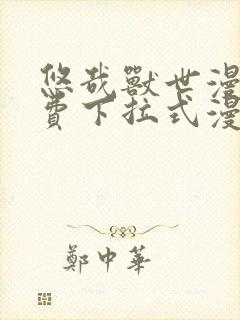 悠哉獸世漫
費下拉式漫
鄭中華